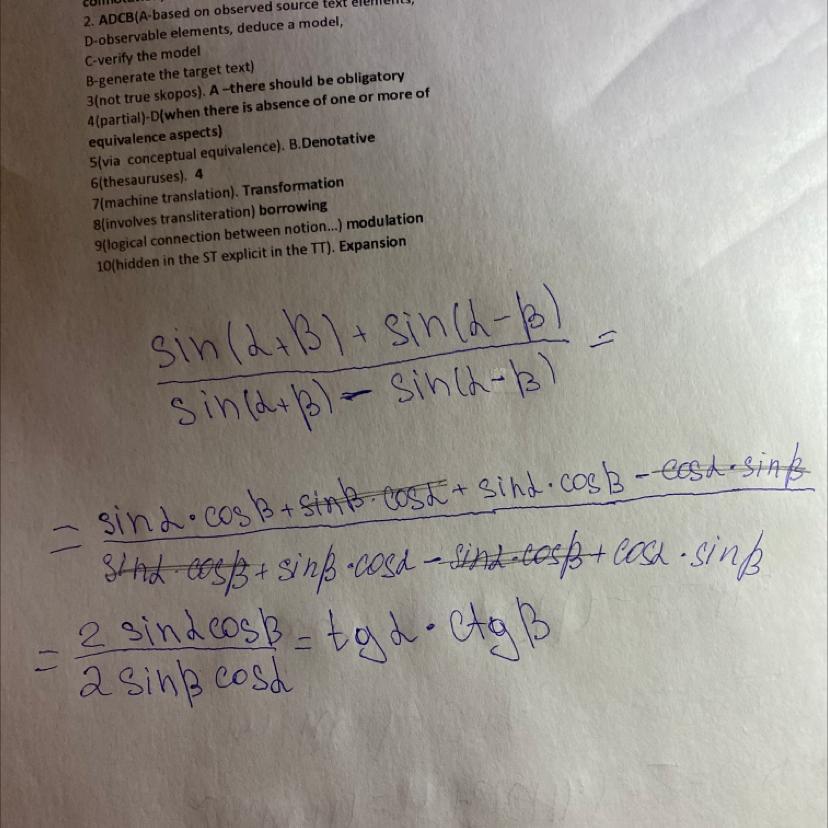 2. ADCB(A-based on observed source text elements,
D-observable elements, deduce a model,
C-verify the model
B-generate the target text)
3(not true skopos). A –there should be obligatory
4(partial)-D(when there is absence of one or more of
equivalence aspects)
5(via conceptual equivalence). B.Denotative
6(thesauruses). 4
7(machine translation). Transformation
8(involves transliteration) borrowing
9(logical connection between notion...) modulation
10(hidden in the ST explicit in the TT). Expansion
sin(α+β) + sin(α-β)
=
sin(α+β) - sin(α-β)
sinα·cosβ + sinβ·cosα + sinα·cosβ - cosα·sinβ
=
sinα·cosβ + sinβ·cosα - sinα·cosβ + cosα·sinβ
2 sinα cosβ
= = tgα · ctgβ
2 sinβ cosα